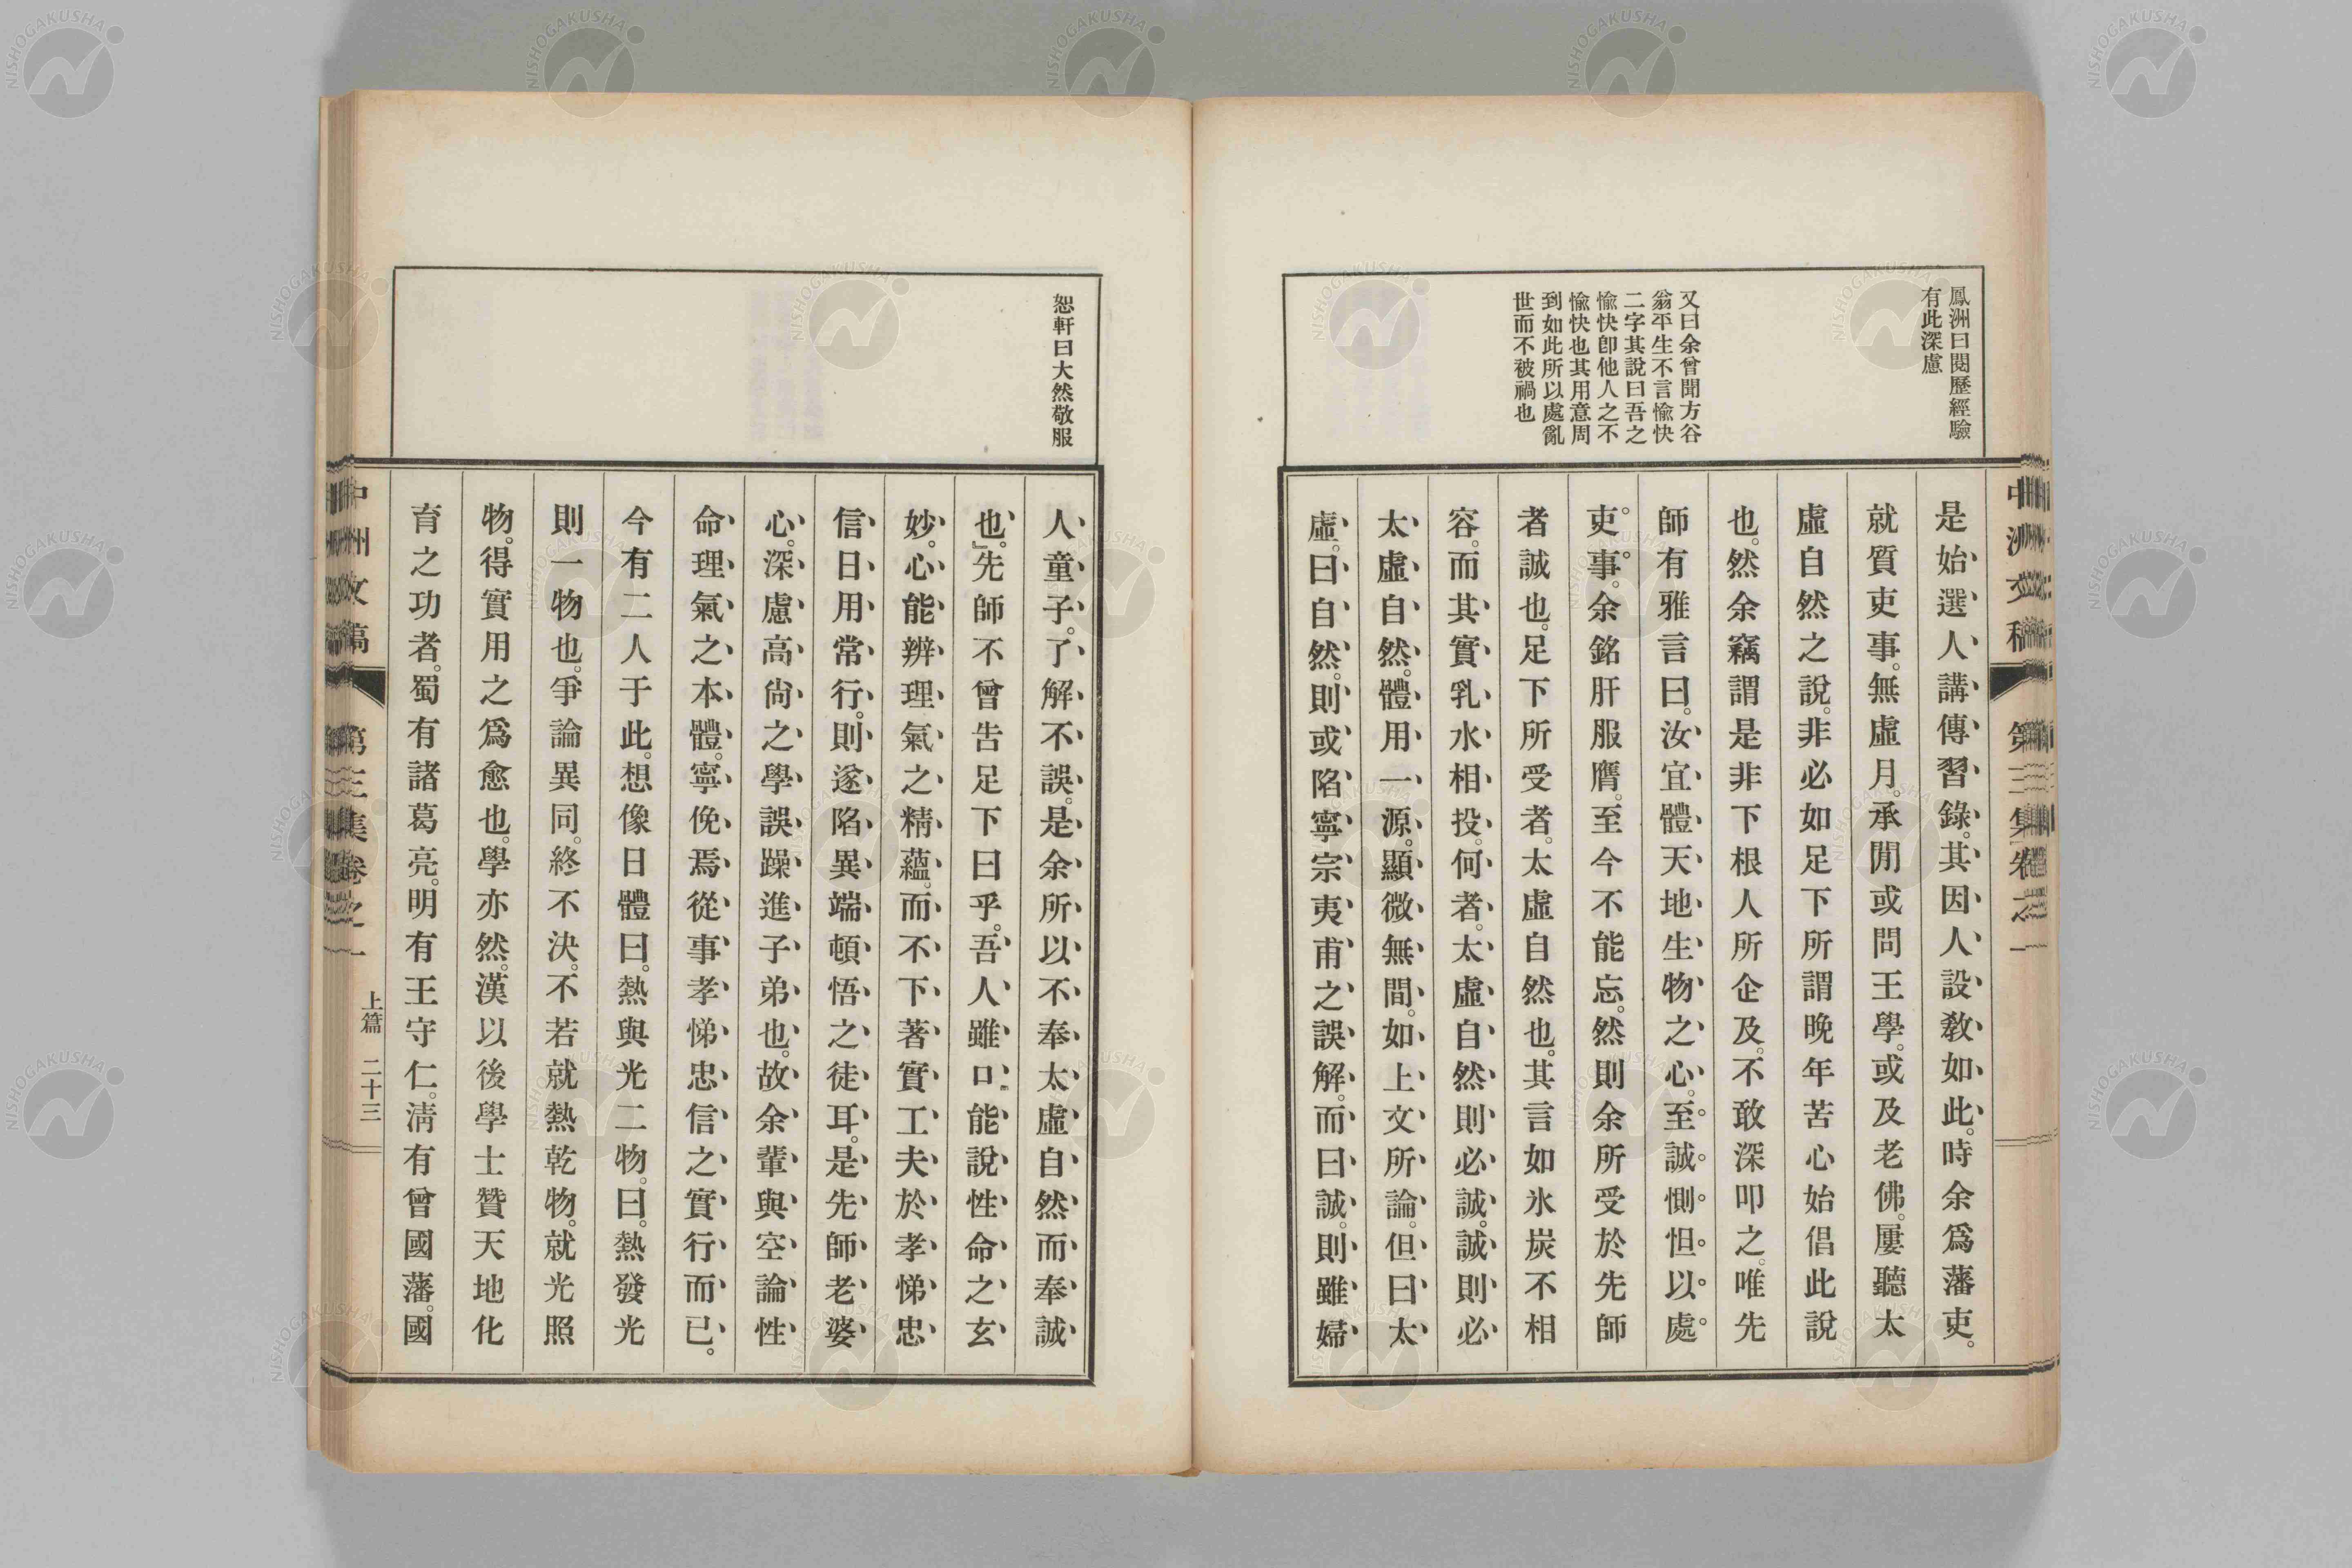 鳳洲曰閱歷經驗
有此深慮
又曰余曾聞方谷
翁平生不言愉快
二字其說曰吾之
愉快卽他人之不
愉快也其用意周
到如此所以處亂
世而不被禍也
是始選人講傳習錄。其因人設敎如此。時余爲藩吏。
就質吏事。無虛月。承閒或問王學。或及老佛。屢聽太
虛自然之說。非必如足下所謂晚年苦心始倡此說
也。然余竊謂是非下根人所企及。不敢深叩之。唯先
師有雅言曰。汝宜體天地生物之心。至誠惻怛。以處
吏事。余銘肝服膺。至今不能忘。然則余所受於先師
者誠也。足下所受者。太虛自然也。其言如氷炭不相
容。而其實乳水相投。何者。太虛自然則必誠。誠則必
太虛自然。體用一源。顯微無間。如上文所論。但曰太
虛。曰自然。則或陷寧宗夷甫之誤解。而曰誠。則雖婦
中洲文稿 第三集卷之一
恕軒曰大然敬服
人童子。了解不誤。是余所以不奉太虛自然而奉誠
也。』先師不曾告足下曰乎。吾人雖口能說性命之玄
妙。心能辨理氣之精蘊。而不下著實工夫於孝悌忠
信日用常行。則遂陷異端頓悟之徒耳。是先師老婆
心。深慮高尙之學誤躁進子弟也。故余輩與空論性
命理氣之本體。寧俛焉從事孝悌忠信之實行而已。
今有二人于此。想像日體曰。熱與光二物。曰。熱發光
則一物也。爭論異同。終不決。不若就熱乾物。就光照
物。得實用之爲愈也。學亦然。漢以後學士贊天地化
育之功者。蜀有諸葛亮。明有王守仁。淸有曾國藩。國
中洲文稿 第三集卷之一 上篇 二十三
NISHOGAKUSHA